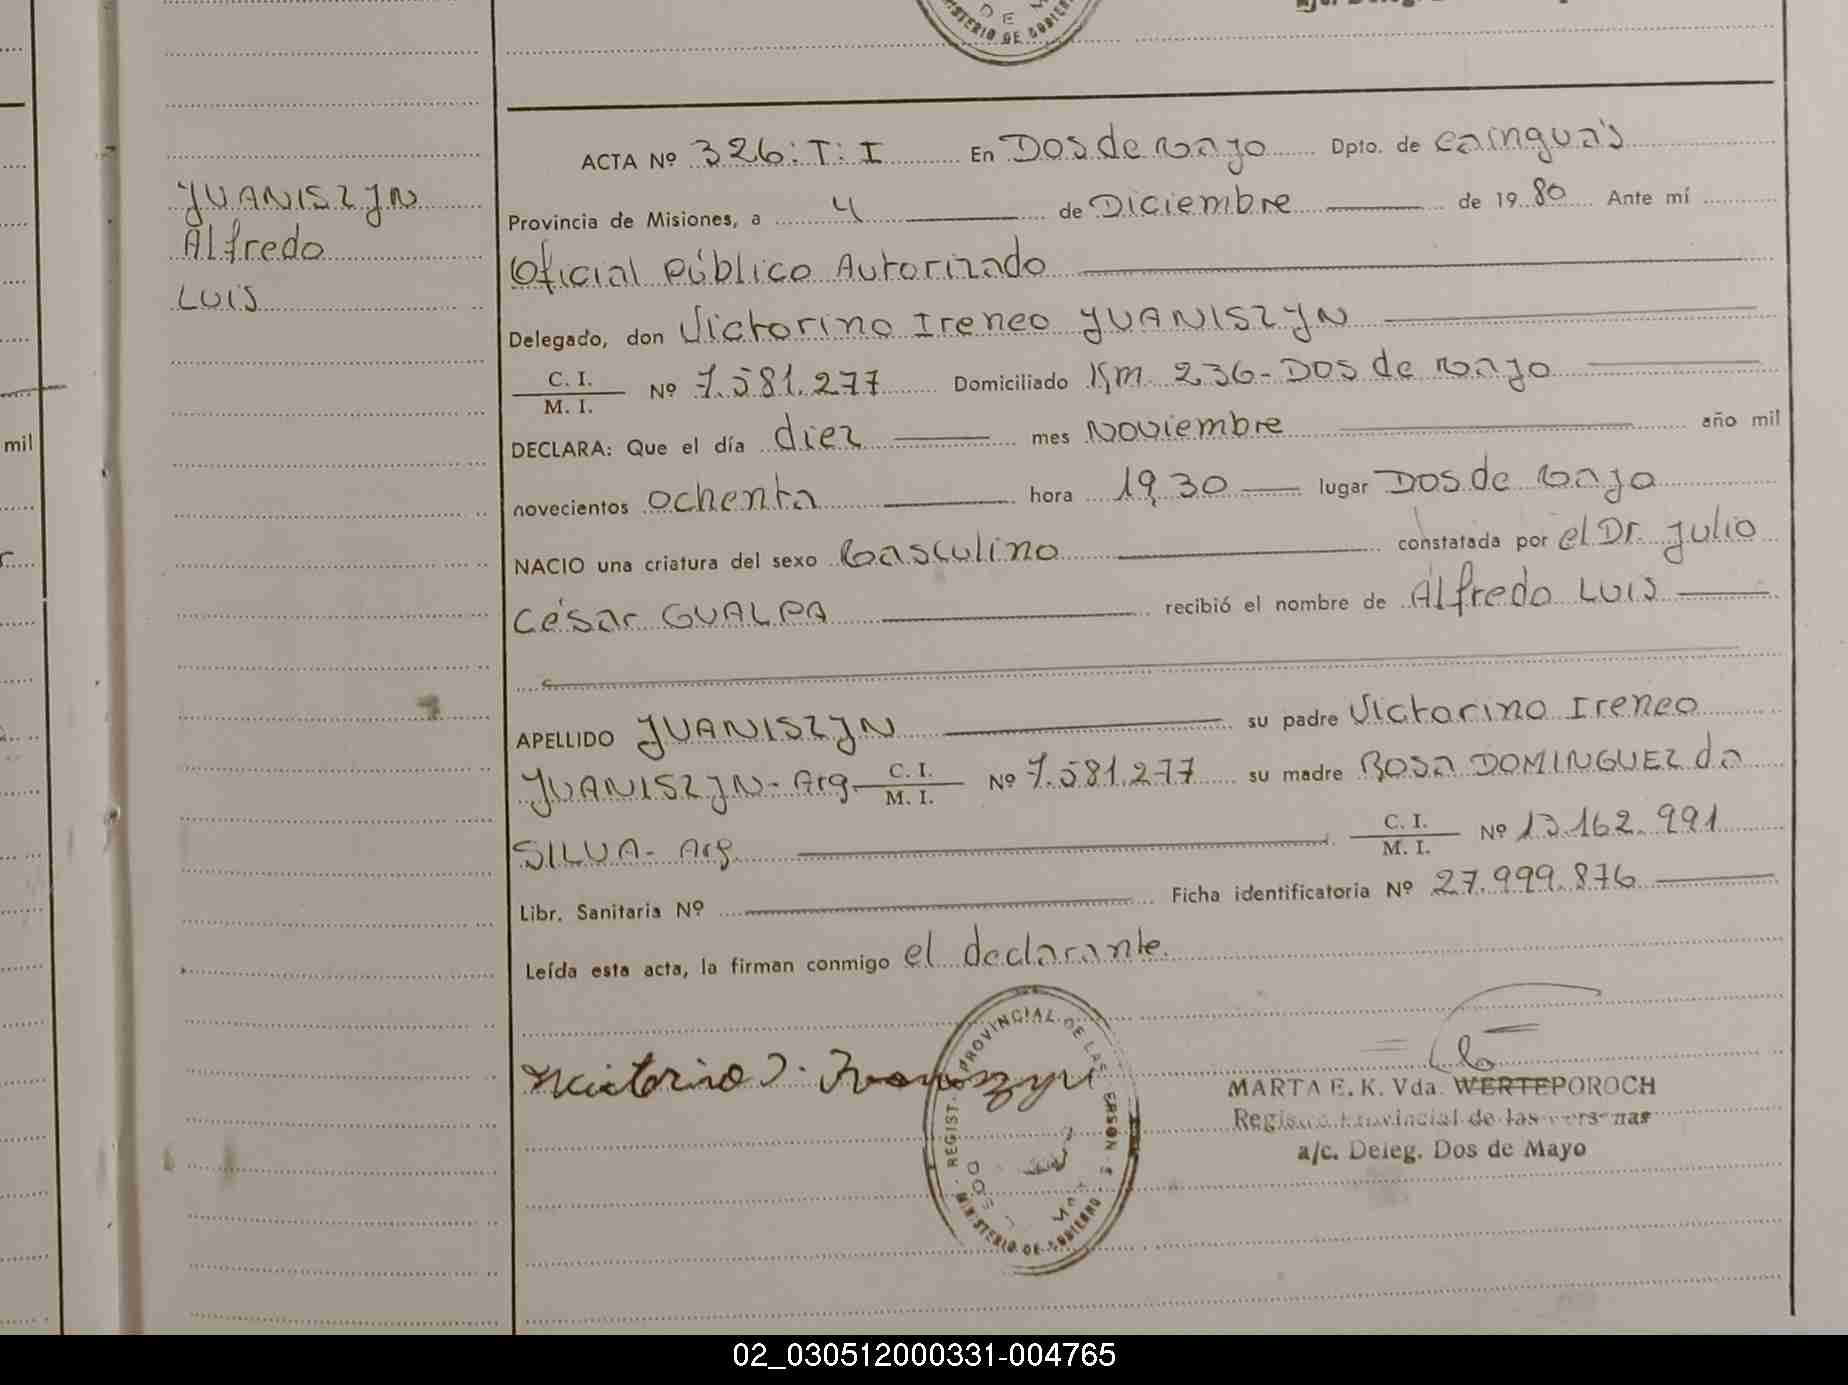 MINISTERIO DE GOBIERNO
ACTA Nº 326:T:I En Dos de Mayo Dpto. de Cainguás
JUANISZYN
Alfredo
Luis
Provincia de Misiones, a 4 de Diciembre de 1980 Ante mí
Oficial Público Autorizado
Delegado, don Victorino Ireneo JUANISZYN
C. I.
M. I. Nº 7.581.277 Domiciliado Km. 236-Dos de Mayo
DECLARA: Que el día diez mes Noviembre año mil
novecientos ochenta hora 19,30 lugar Dos de Mayo
NACIO una criatura del sexo Masculino constatada por el Dr. Julio
César GUALPA recibió el nombre de Alfredo Luis
APELLIDO JUANISZYN su padre Victorino Ireneo
JUANISZYN-Arg. C. I. M. I. Nº 7.581.277 su madre ROSA DOMINGUEZ da
SILVA-Arg. C. I. M. I. Nº 13.162.991
Libr. Sanitaria Nº Ficha identificatoria Nº 27.999.876
Leída esta acta, la firman conmigo el declarante.
REGIST. PROVINCIAL DE LAS PERSONAS
MINISTERIO DE GOBIERNO
MARTA E. K. Vda. WERTEPOROCH
Registro Provincial de las Personas
a/c. Deleg. Dos de Mayo
mil
02_030512000331-004765